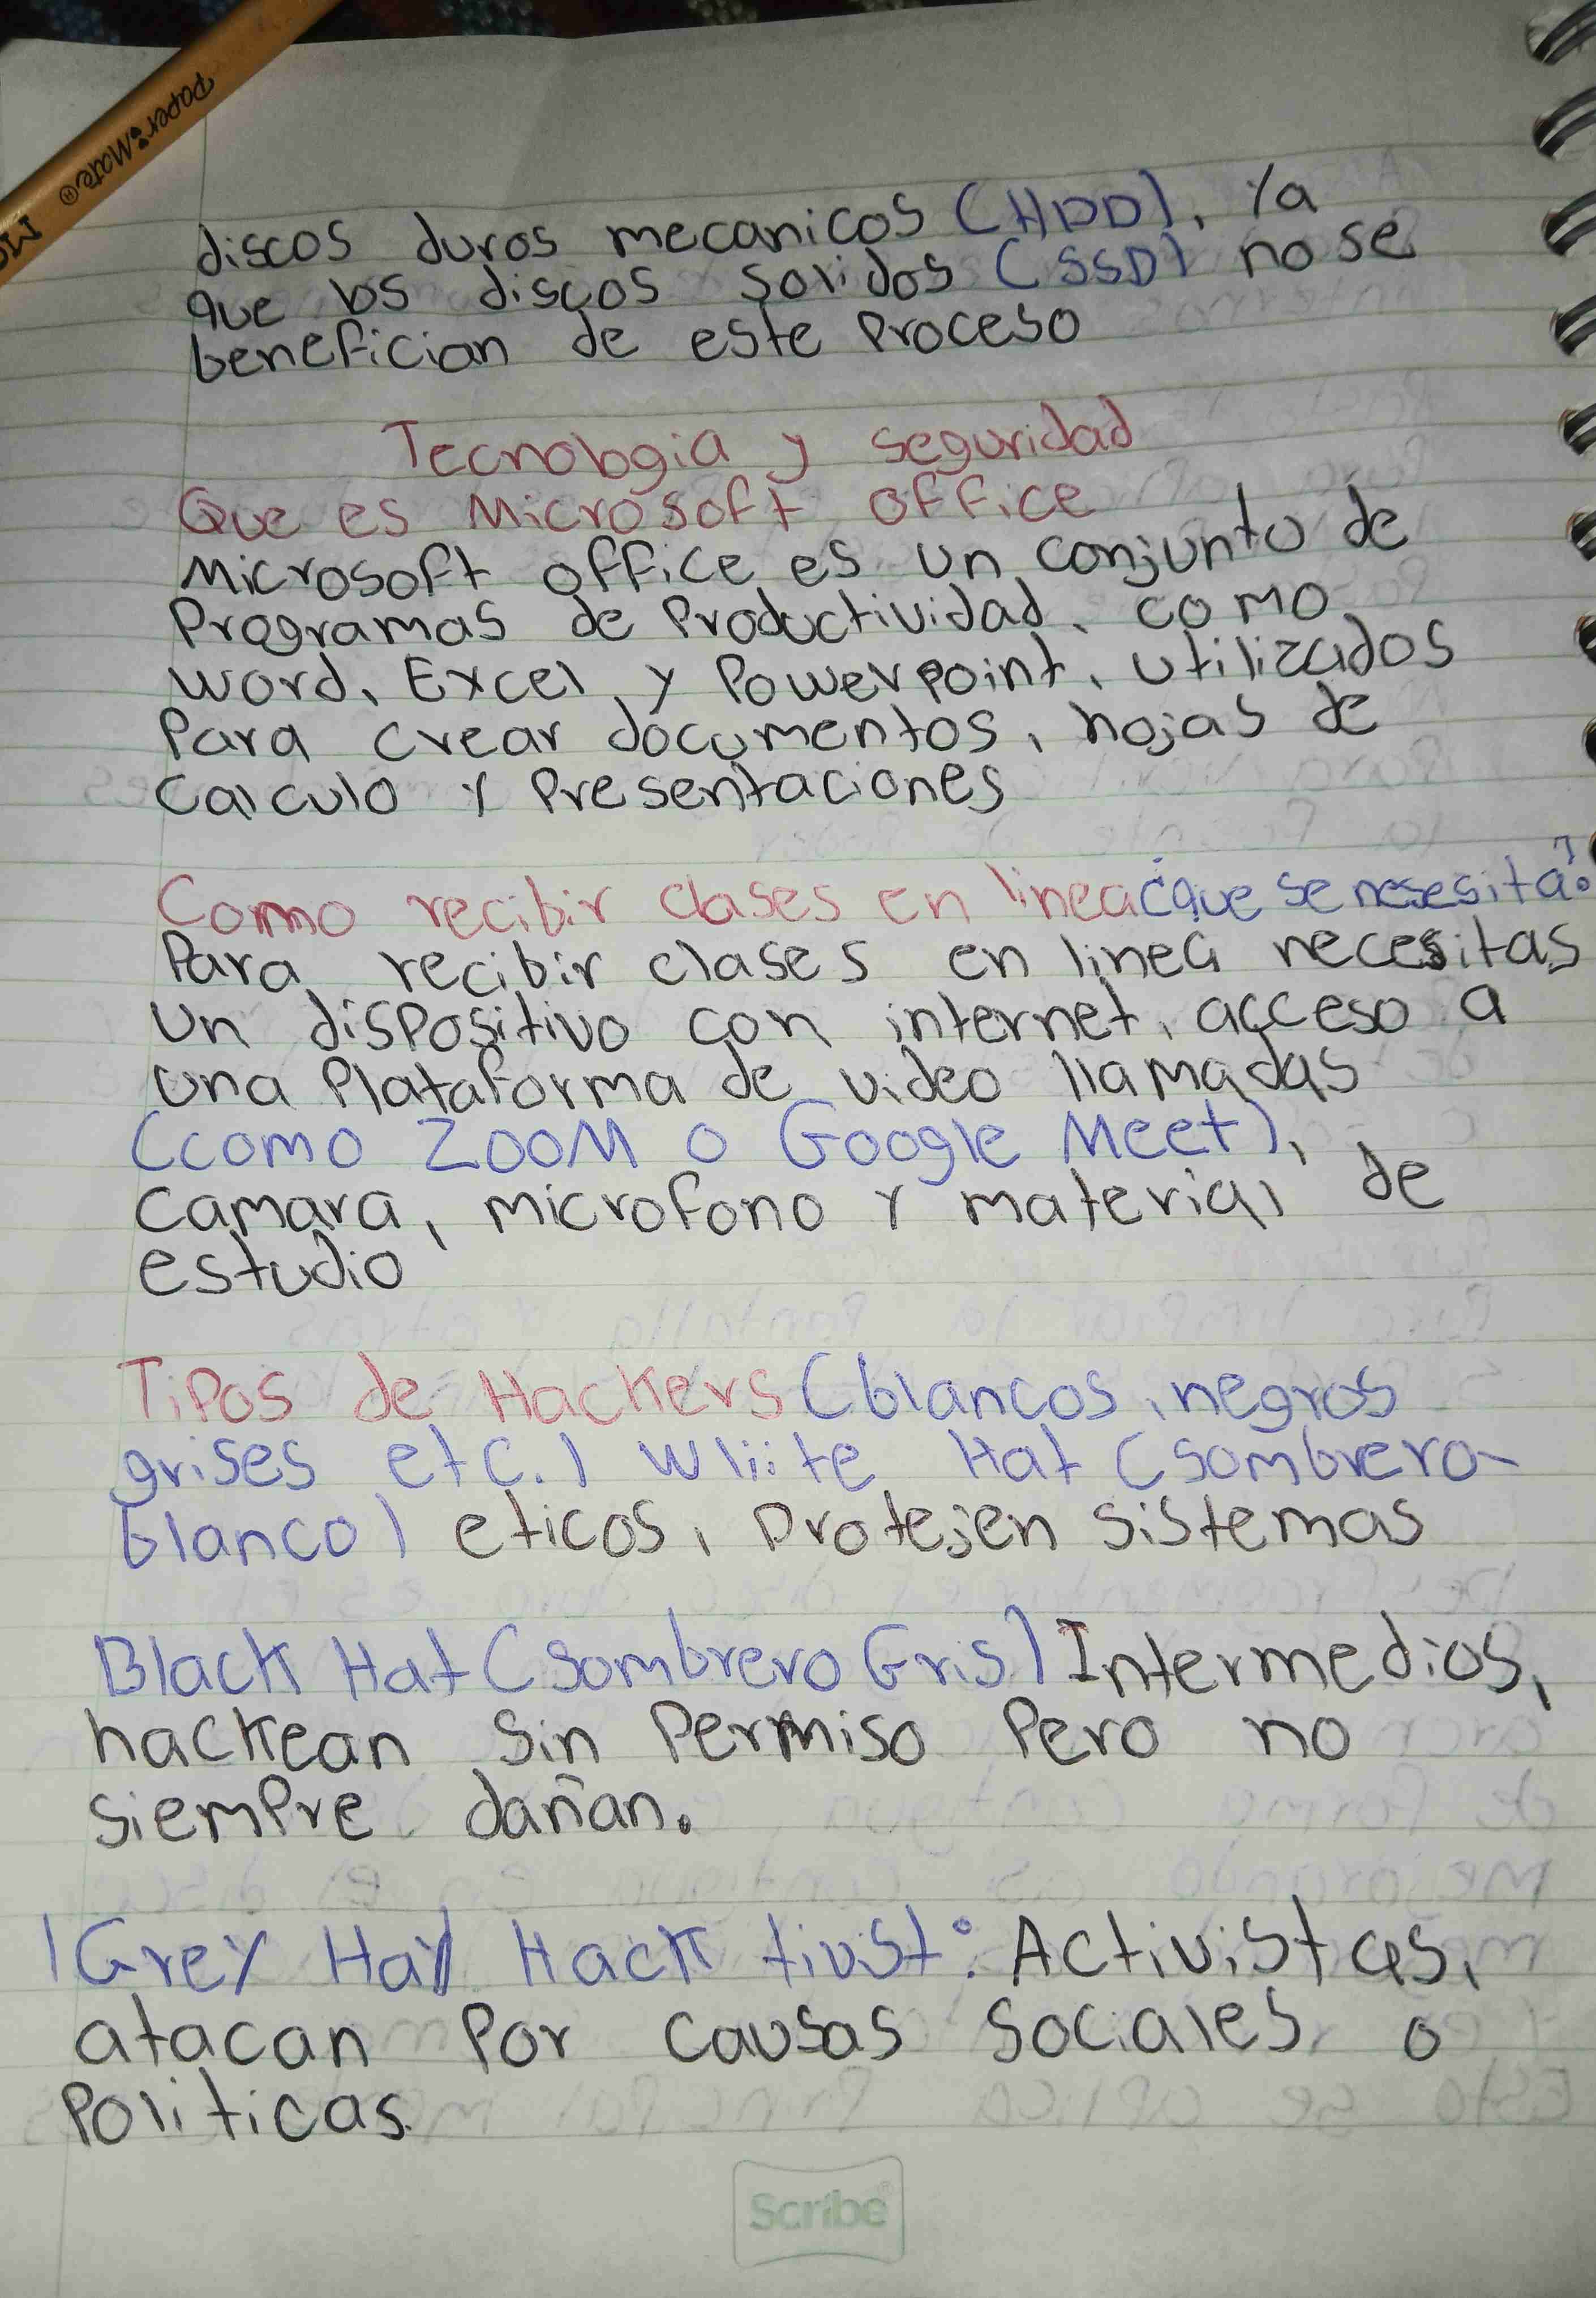 Paper Mate®
discos duros mecanicos (HDD), Ya
que los discos solidos (SSD) no se
benefician de este Proceso
Tecnologia y seguridad
Que es Microsoft office
Microsoft office es un conjunto de
Programas de Productividad, como
word, Excel y Powerpoint, utilizados
Para crear documentos, hojas de
calculo y Presentaciones
Como recibir clases en linea ¿que se nesesita?
Para recibir clases en linea necesitas
un disPositivo con internet, acceso a
una Plataforma de video llamadas
(como ZOOM o Google Meet),
camara, microfono y material de
estudio
TiPos de Hackers (blancos, negros
grises etc.) Wliite Hat (sombrero-
blanco) eticos, Protejen sistemas
Black Hat (sombrero Gris) Intermedios,
hackean sin Permiso Pero no
siemPre dañan.
Grey Hat Hack tivst: Activistas,
atacan Por causas sociales o
Politicas.
Scribe®